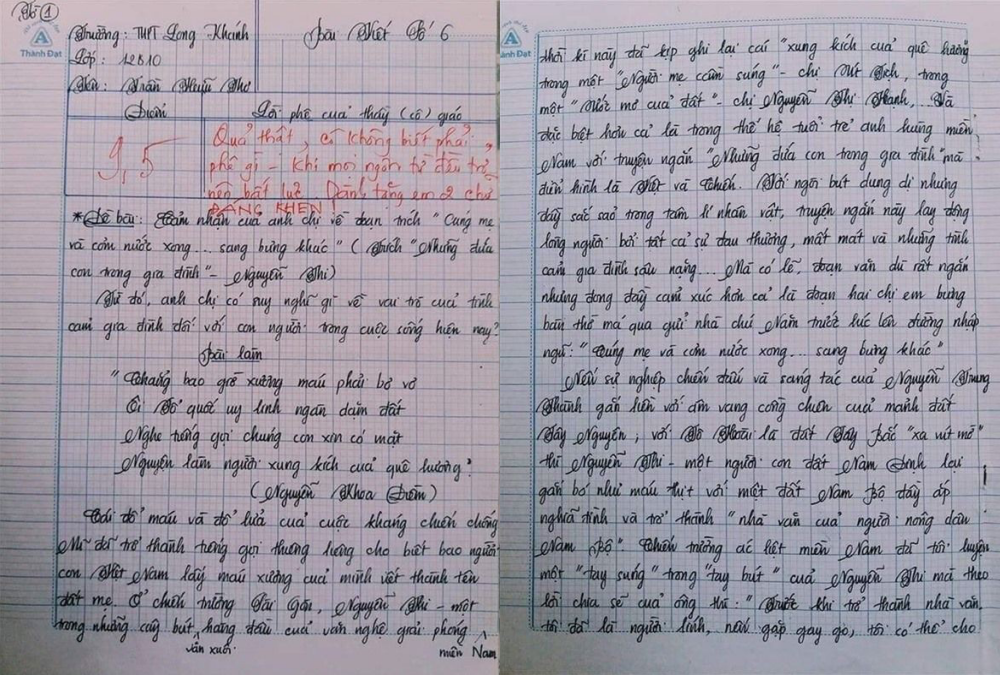 Tờ 1
Thành Đạt
Trường: THPT Long Khánh
Bài Viết Số 6
Lớp: 12B10
Tên: Trần Thụy Thơ
Điểm
Lời phê của thầy (cô) giáo
9,5
Quả thật, cô không biết phải
phê gì - Khi mọi ngôn từ đều trở
nên bất lực. Dành tặng em 2 chữ
ĐÁNG KHEN!
* Đề bài: Cảm nhận của anh chị về đoạn trích "Cúng mẹ
và cơm nước xong... sang bưng khác" (Trích "Những đứa
con trong gia đình" - Nguyễn Thi)
Từ đó, anh chị có suy nghĩ gì về vai trò của tình
cảm gia đình đối với con người trong cuộc sống hiện nay?
Bài làm
"Thằng bao giờ xương máu phải bỏ vơ
Ôi Tổ quốc uy linh ngàn dặm đất
Nghe tiếng gọi chúng con xin có mặt
Nguyện làm người xung kích của quê hương"
(Nguyễn Khoa Điềm)
Cái đỏ máu và đỏ lửa của cuộc kháng chiến chống
Mĩ đã trở thành tiếng gọi thương lòng cho biết bao người
con Việt Nam lấy máu xương của mình viết thành tên
đất mẹ. Ở chiến trường Sài Gòn, Nguyễn Thi - một
trong những cây bút văn xuôi hàng đầu của văn nghệ giải phóng miền Nam
Thành Đạt
thời kì này đã kịp ghi lại cái "xung kích của quê hương
trong một "Người mẹ cầm súng" - chị Út Tịch, trong
một "Ước mơ của đất" - chị Nguyễn Thị Hạnh,... Và
đặc biệt hơn cả là trong thế hệ tuổi trẻ anh hùng miền
Nam với truyện ngắn "Những đứa con trong gia đình" mà
điển hình là Việt và Chiến. Với ngòi bút dung dị nhưng
đầy sắc sảo trong tâm lí nhân vật, truyện ngắn này lay động
lòng người bởi tất cả sự đau thương, mất mát và những tình
cảm gia đình sâu nặng... Mà có lẽ, đoạn văn dù rất ngắn
nhưng đong đầy cảm xúc hơn cả là đoạn hai chị em bưng
bàn thờ má qua gửi nhà chú Năm trước lúc lên đường nhập
ngũ: "Cúng mẹ và cơm nước xong... sang bưng khác"
Nếu sự nghiệp chiến đấu và sáng tác của Nguyễn Trung
Thành gắn liền với âm vang cồng chiên của mảnh đất
Tây Nguyên; với Tô Hoài là đất Tây Bắc "xa vút mờ"
thì Nguyễn Thi - một người con đất Nam Định lại
gắn bó như máu thịt với miệt đất Nam Bộ đầy ắp
nghĩa tình và trở thành "nhà văn của người nông dân
Nam Bộ". Chiến trường ác liệt miền Nam đã tôi luyện
một "tay súng" trong "tay bút" của Nguyễn Thi mà theo
lời chia sẻ của ông thì: "Trước khi trở thành nhà văn,
tôi đã là người lính, nếu gặp gay go, tôi có thể cho